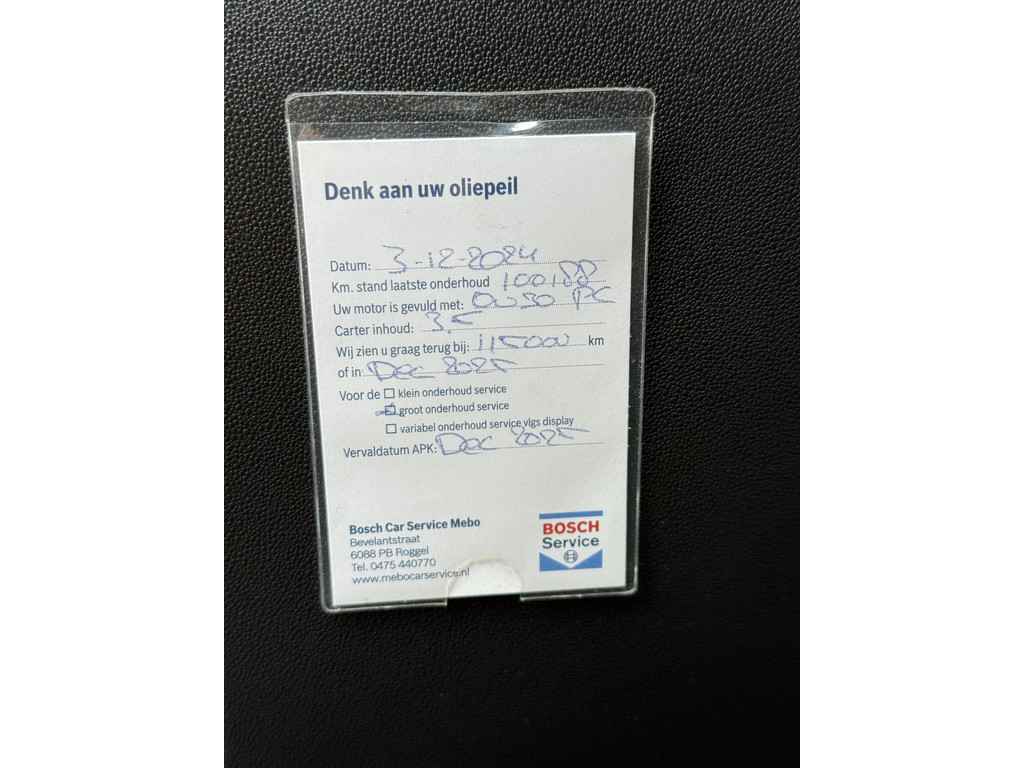 Denk aan uw oliepeil
Datum: 3-12-2024
Km. stand laatste onderhoud 100188
Uw motor is gevuld met: 0w30 PC
Carter inhoud: 3.5
Wij zien u graag terug bij: 115000 km
of in: Dec 2025
Voor de klein onderhoud service
groot onderhoud service
variabel onderhoud service vlgs display
Vervaldatum APK: Dec 2025
Bosch Car Service Mebo
Bevelantstraat
6088 PB Roggel
Tel. 0475 440770
www.mebocarservice.nl
BOSCH
Service